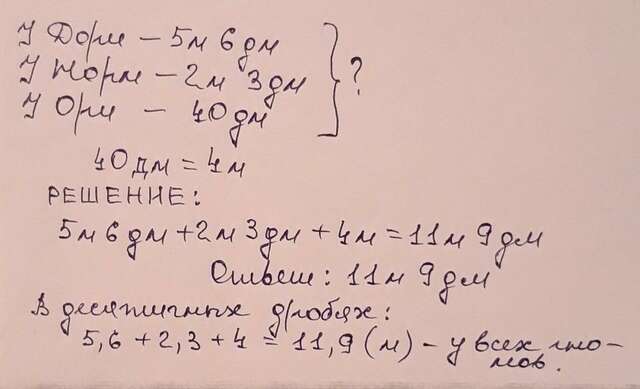 У Дори – 5м 6дм
У Нори – 2м 3дм
У Ори – 40дм
?
40дм = 4м
РЕШЕНИЕ:
5м 6дм + 2м 3дм + 4м = 11м 9дм
Ответ: 11м 9дм
В десятичных дробях:
5,6 + 2,3 + 4 = 11,9 (м) – у всех гно-
мов.